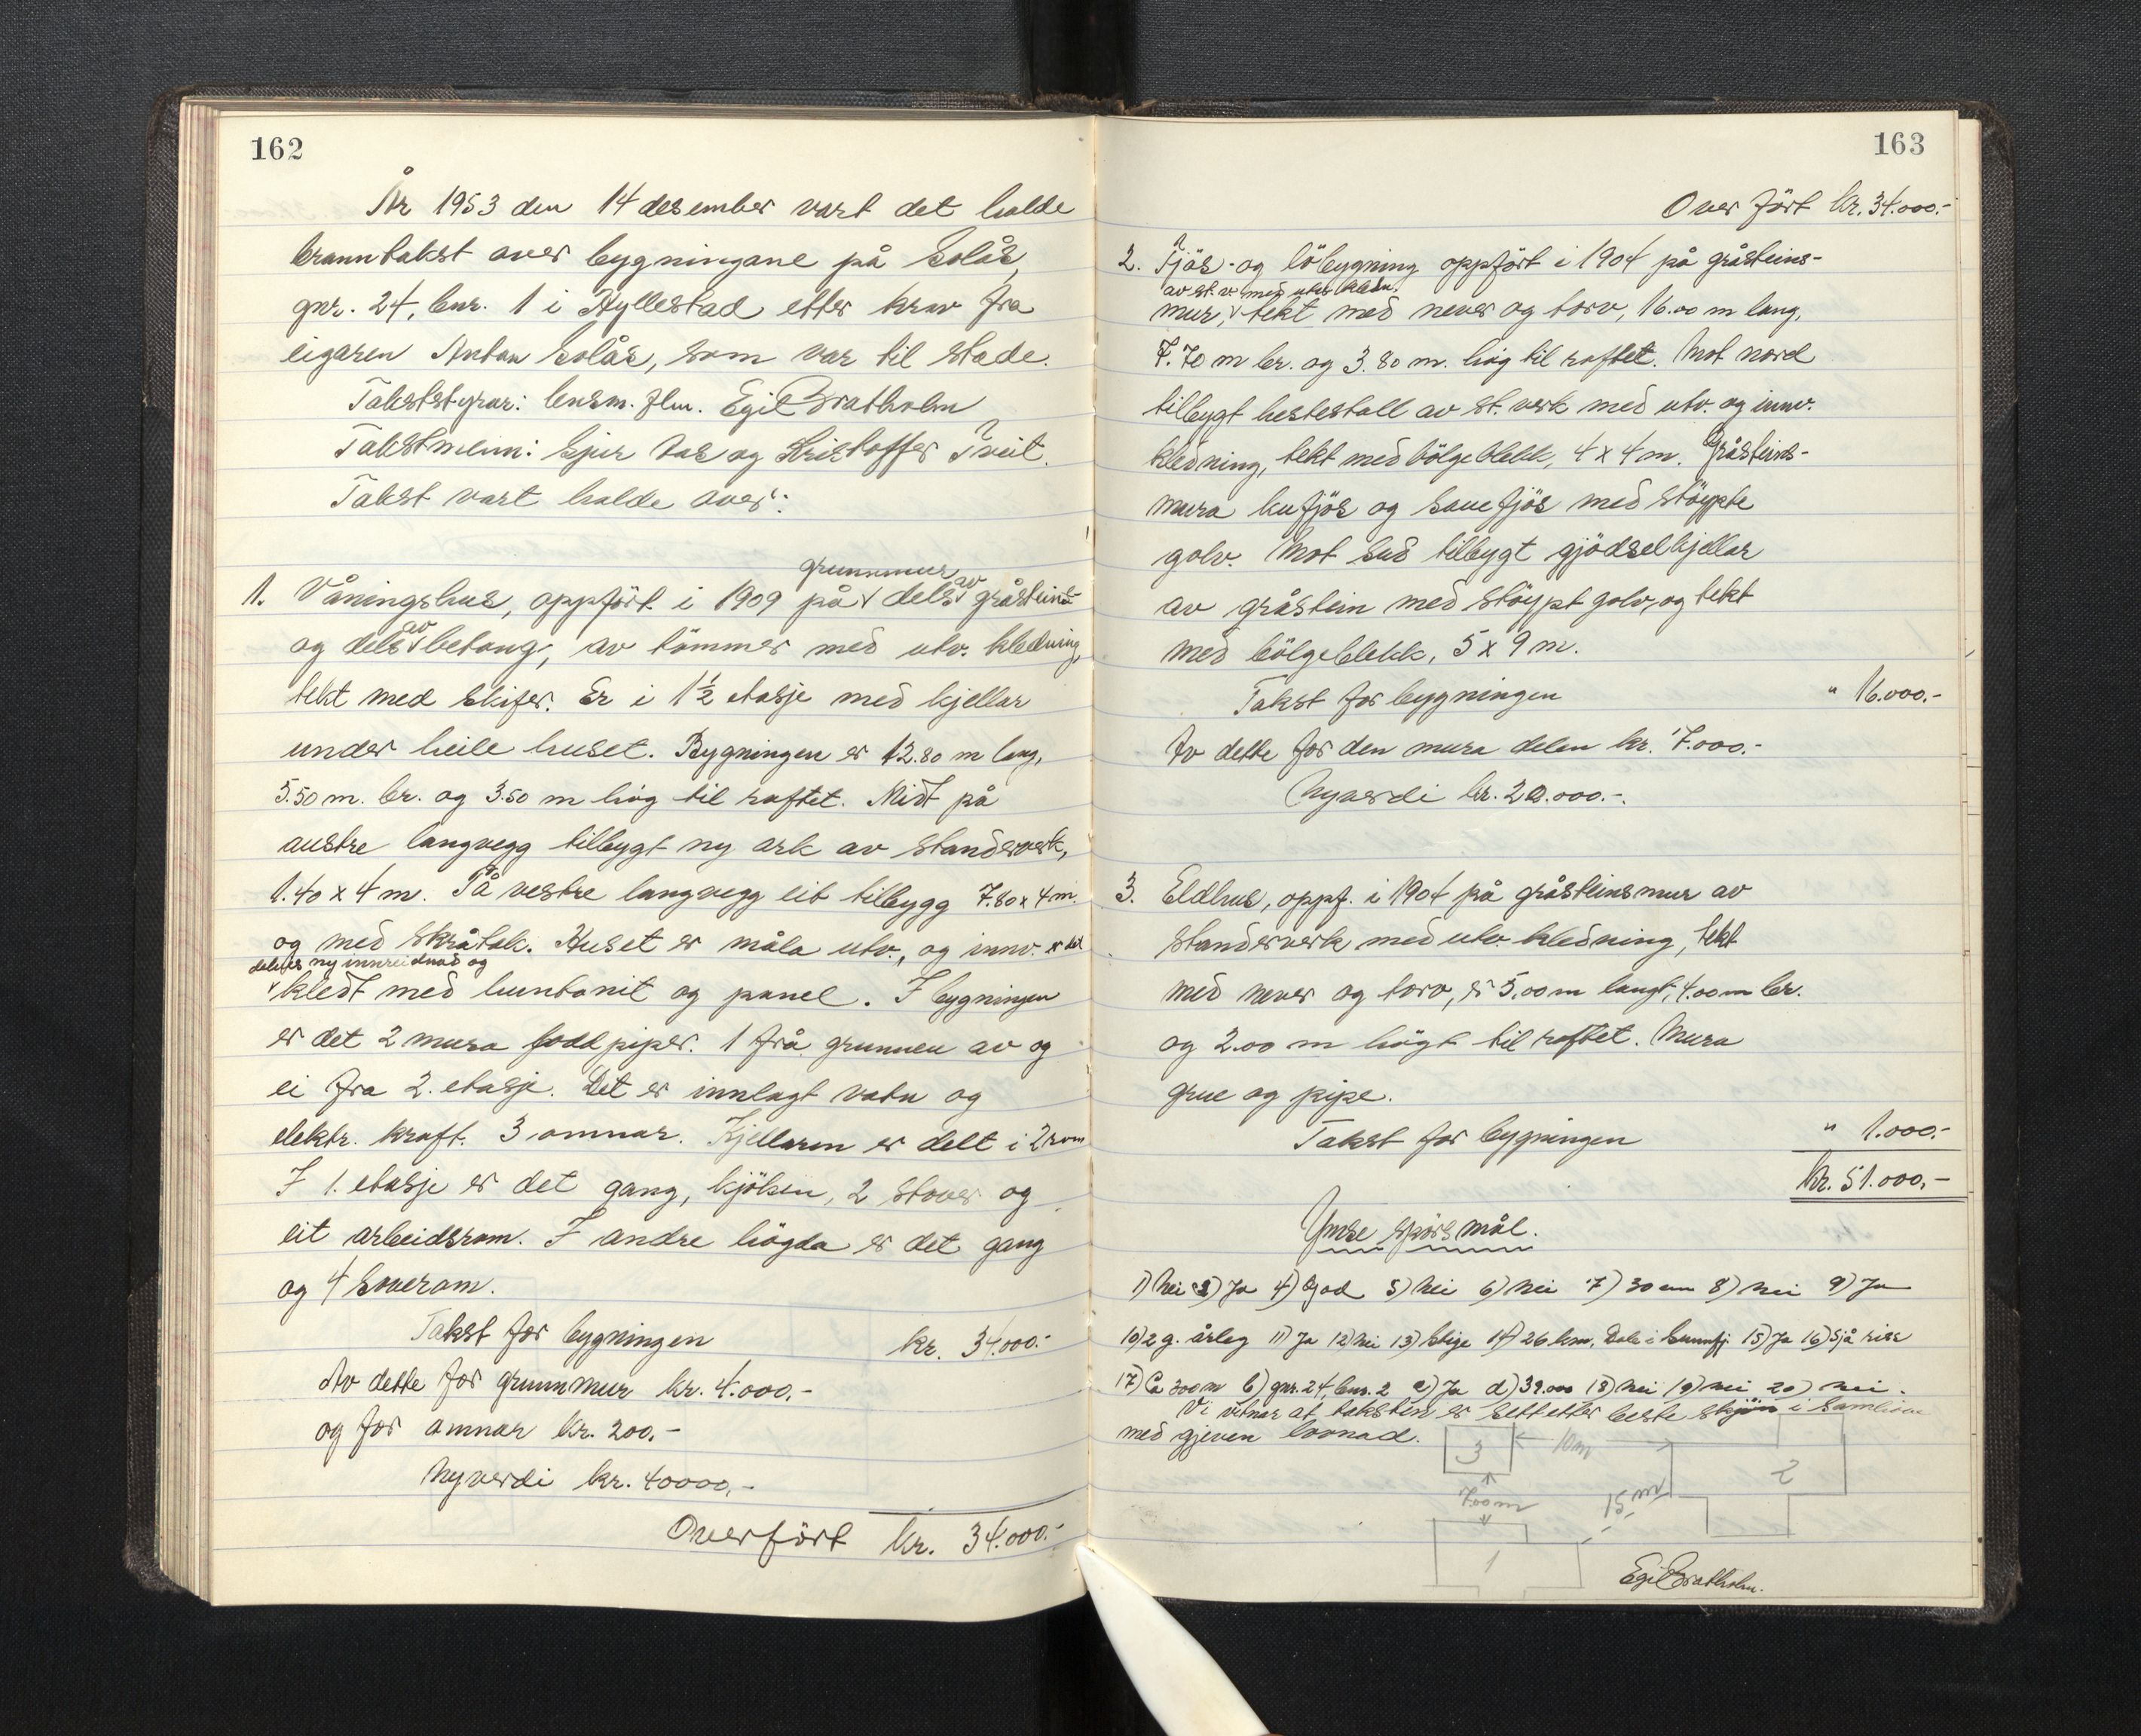 162
År 1953 den 14 desember vart det halde
branntakst over bygningane på Solås,
gnr. 24, bnr. 1 i Hyllestad etter krav fra
eigaren Anton Solås, som var til stade.
Takststyrar: lensm. flm. Egil Bratholm
Takstmenn: Sjur Aas og Kristoffer Tveit.
Takst vart halde over:
grunnmur av
1. Våningshus, oppført i 1909 på v dels v gråsteins-
av
og dels v betong, av tømmer med utv. kledning,
tekt med skifer. Er i 1 ½ etasje med kjellar
under heile huset. Bygningen er 12.80 m lang,
5.50 m. br. og 3.50 m høg til raftet. Midt på
austre langvegg tilbygt ny ark av standerverk,
1.40 x 4 m. På vestre langvegg eit tilbygg 7.80 x 4 m.
og med skråtak. Huset er måla utv., og innv. er det
delvis ny innreidnad og
v kledt med huntonit og panel. I bygningen
er det 2 mura fodd piper. 1 frå grunnen av og
ei fra 2. etasje. Det er innlagt vatn og
elektr. kraft. 3 omnar. Kjellaren er delt i 2 rom
I 1. etasje er det gang, kjøken, 2 stover og
eit arbeidsrom. I andre høgda er det gang
og 4 soverom.
Takst for bygningen kr. 34.000.-
Av dette for grunnmur kr. 4.000.-
og for omnar kr. 200.-
Nyverdi kr. 40000.-
Overført kr. 34.000.-
163
Overført kr. 34.000.-
2. Fjøs- og løbygning oppført i 1904 på gråsteins-
av st. v. med utv. kledn.
mur, v tekt med never og torv, 16.00 m lang,
7.70 m br. og 3.80 m. høg til raftet. Mot nord
tilbygt hestestall av st. verk med utv. og innv.
kledning, tekt med bølgeblekk, 4 x 4 m. Gråsteins-
mura kufjøs og sauefjøs med støypte
golv. Mot sud tilbygt gjødselkjellar
av gråstein med støypt golv, og tekt
med bølgeblekk, 5 x 9 m.
Takst for bygningen " 16.000.-
Av dette for den mura delen kr. 7.000.-
Nyverdi kr. 20.000.-.
3. Eldhus, oppf. i 1904 på gråsteinsmur av
standerverk med utv. kledning, tekt
med never og torv, er 5.00 m langt, 4.00 m br.
og 2.00 m høgt til raftet. Mura
grue og pipe.
Takst for bygningen " 1.000.-
kr. 51.000.-
Ymse spørsmål.
1) Nei 3) Ja 4) God 5) Nei 6) Nei 7) 30 cm 8) Nei 9) Ja
10) 2 g. årleg 11) Ja 12) Nei 13) Stige 14) 26 km, Dale i Sunnfj. 15) Ja 16) Sjå riss
17) Ca 300 m b) gnr. 24, bnr. 2 c) Ja d) 39.000 18) Nei 19) Nei 20) Nei.
Vi vitnar at taksten er sett etter beste skjøn i samhøve
med gjeven lovnad.
3 10 m 2
7.00 m 15 m
1
Egil Bratholm.